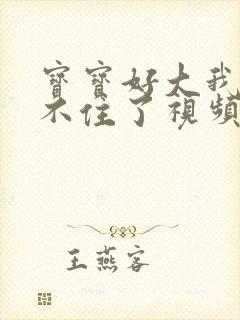 寶寶好大我
不住了視頻
王燕客